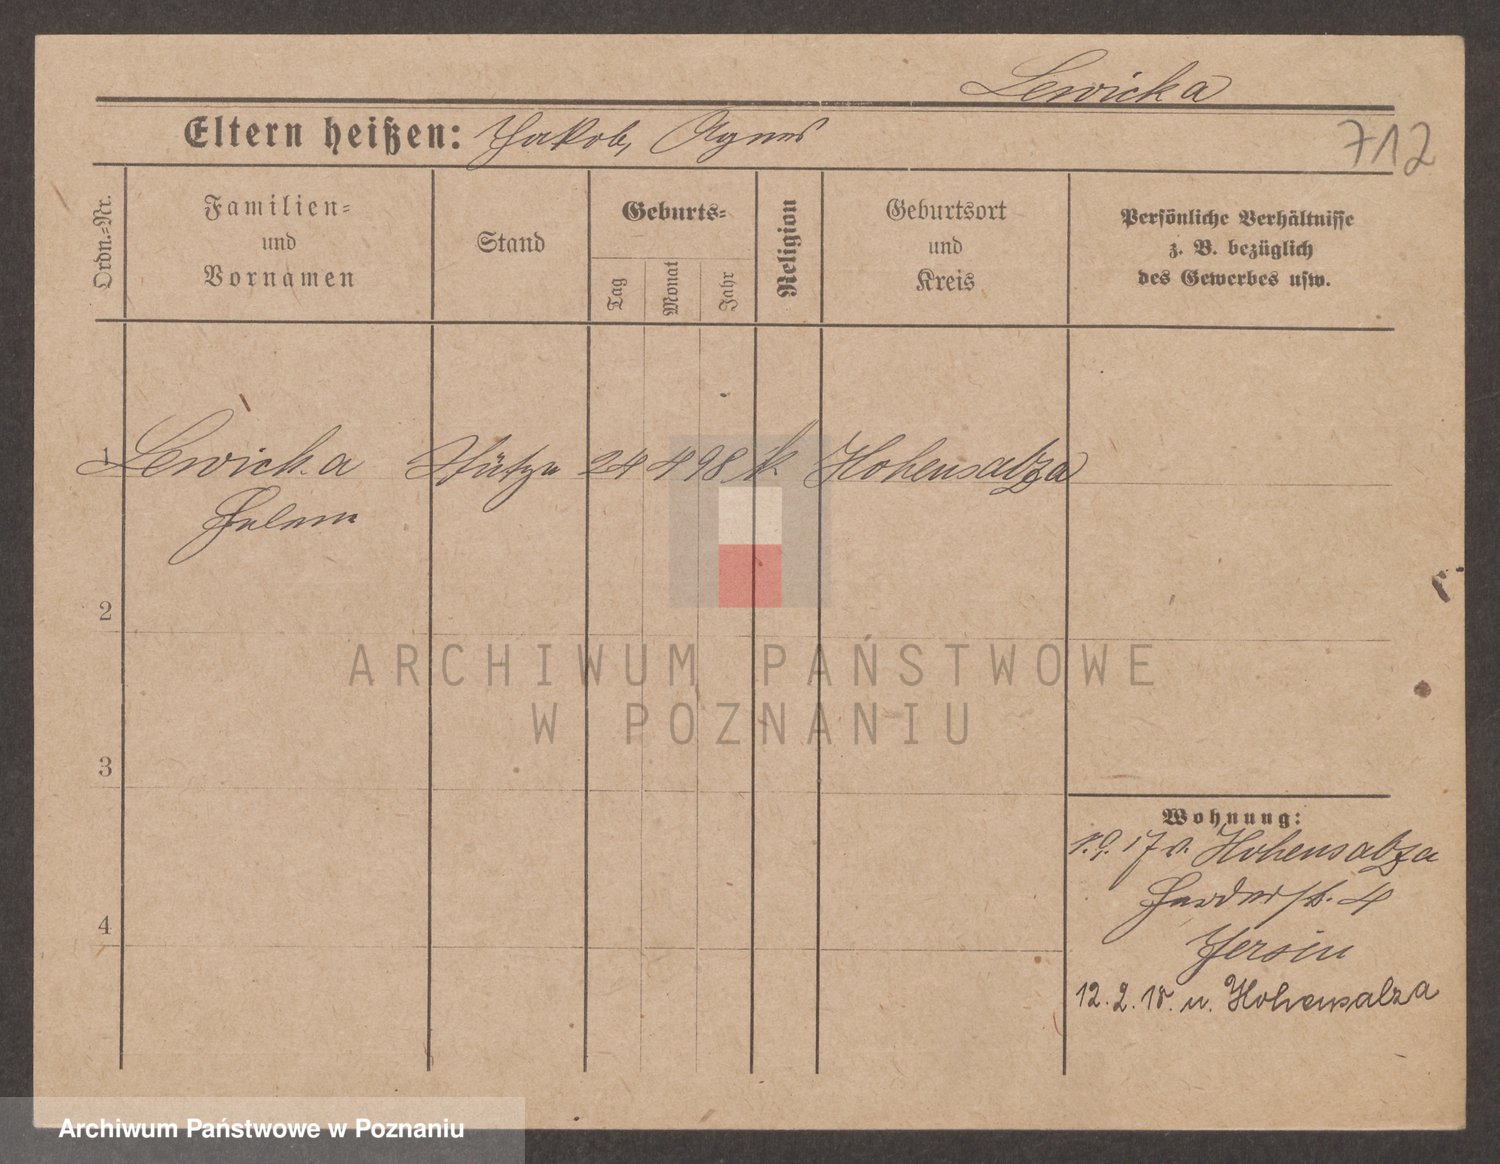 Lewicka
Eltern heißen: Jakob, Agnes
712
Ordn.=Nr.
Familien=
und
Vornamen
Stand
Geburts=
Tag
Monat
Jahr
Religion
Geburtsort
und
Kreis
Persönliche Verhältnisse
z. B. bezüglich
des Gewerbes usw.
1 Lewicka Stütze 24 4 98 k. Hohensalza
Helene
2
ARCHIWUM PAŃSTWOWE
W POZNANIU
3
Wohnung:
1.9.17 v. Hohensalza
4
Herderst. 4
Jersin
12.2.18. n. Hohensalza
Archiwum Państwowe w Poznaniu